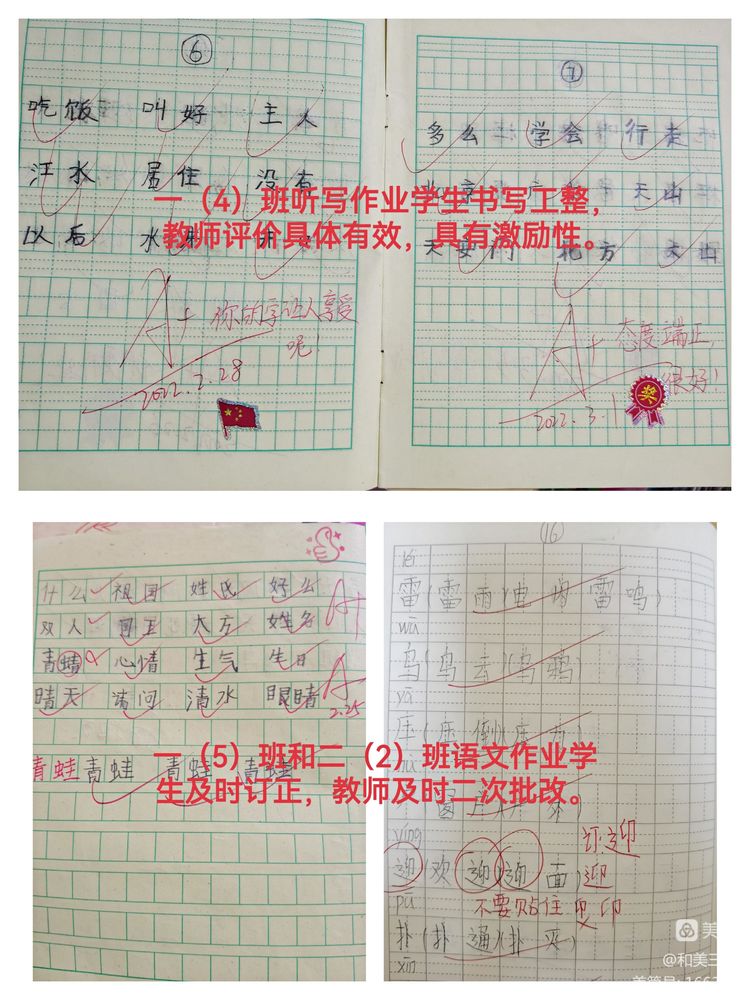 6
吃饭 叫好 主人
汪水 居住 没有
一（4）班听写作业学生书写工整，
教师评价具体有效，具有激励性。
以后 水
A+ 你的字让人享受
呢！
2022.2.28
7
多么 学会 行走
天山
天安门 北方
A+ 态度端正，
很好！
奖
2022.3.1
什么 祖国 姓氏 好么
双人 国王 大方 姓名 A+
青蜻 心情 生气 生日
晴天 请问 清水 眼睛 A
2.25
一（5）班和二（2）班语文作业学
生及时订正，教师及时二次批改。
青蛙 青蛙 青蛙 青蛙
16
léi
雷（雷雨）（电 雷鸣）
wū
乌（乌云）（乌鸦）
yā
压（压倒）（压力）
yíng 订：迎
迎（欢迎）（迎面）迎
pū 不要贴住
扑（扑通）（扑来）
xīn
美
@和美三
美篇号：1663